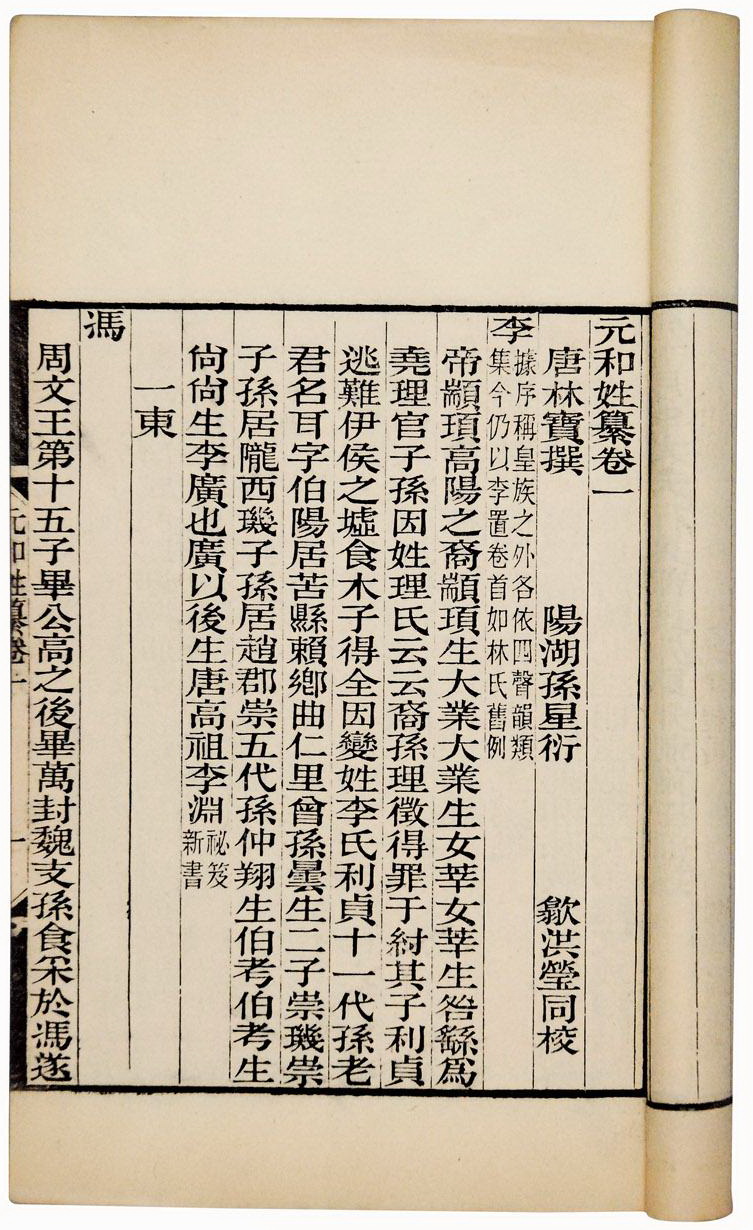 元和姓纂卷一
唐林寶撰　陽湖孫星衍　歙洪瑩同校
李
據序稱皇族之外各依四聲韻類
集今仍以李置卷首如林氏舊例
帝顓頊高陽之裔顓頊生大業大業生女莘女莘生咎繇爲
堯理官子孫因姓理氏云云裔孫理徵得罪于紂其子利貞
逃難伊侯之墟食木子得全因變姓李氏利貞十一代孫老
君名耳字伯陽居苦縣賴鄉曲仁里曾孫曇生二子崇璣崇
子孫居隴西璣子孫居趙郡崇五代孫仲翔生伯考伯考生
尙尙生李廣也廣以後生唐高祖李淵
祕笈
新書
一東
馮
周文王第十五子畢公高之後畢萬封魏支孫食采於馮遂
元和姓纂卷一
一